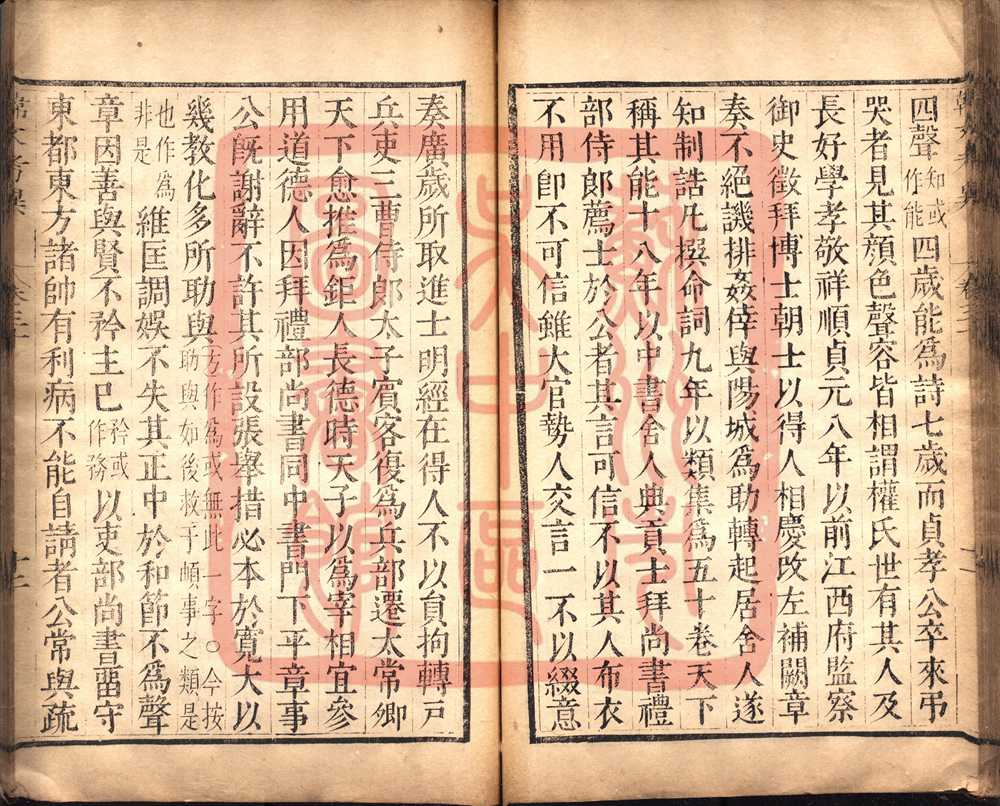 四聲知或作能四歲能為詩七歲而貞孝公卒來弔
哭者見其顏色聲容皆相謂權氏世有其人及
長好學孝敬祥順貞元八年以前江西府監察
御史徵拜博士朝士以得人相慶改左補闕章
奏不絕譏排姦倖與陽城為助轉起居舍人遂
知制誥凡撰命詞九年以類集為五十卷天下
稱其能十八年以中書舍人典貢士拜尚書禮
部侍郎薦士於公者其言可信不以其人布衣
不用即不可信雖大官勢人交言一不以綴意
奏廣歲所取進士明經在得人不以員拘轉戶
兵吏三曹侍郎太子賓客復為兵部遷太常卿
天下愈推為鉅人長德時天子以為宰相宜參
用道德人因拜禮部尚書同中書門下平章事
公既謝辭不許其所設張舉措必本於寬大以
幾教化多所助與方作為或無此一字○今按助與如後救于頔事之類是
也作為非是維匡調娛不失其正中於和節不為聲
章因善與賢不矜主已矜或作務以吏部尚書畱守
東都東方諸帥有利病不能自請者公常與疏